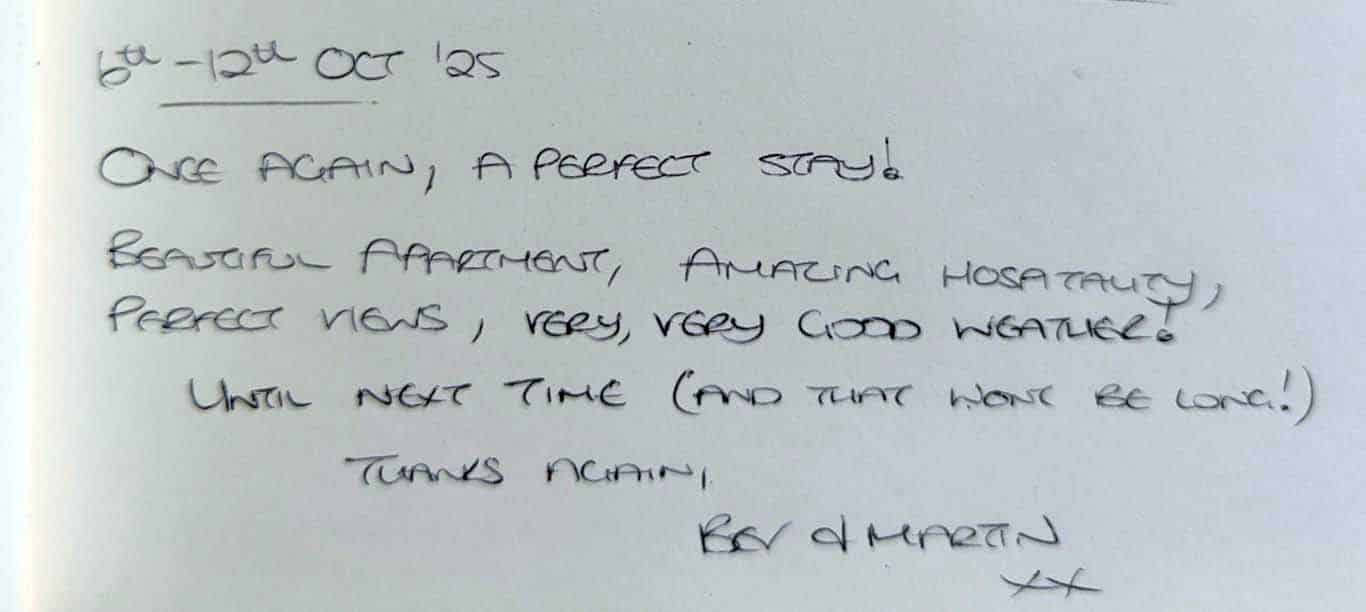 6th - 12th OCT '25
ONCE AGAIN, A PERFECT STAY!
BEAUTIFUL APARTMENT, AMAZING HOSPATALITY,
PERFECT VIEWS, VERY, VERY GOOD WEATHER!
UNTIL NEXT TIME (AND THAT WONT BE LONG!)
THANKS AGAIN,
BEV & MARTIN
xx